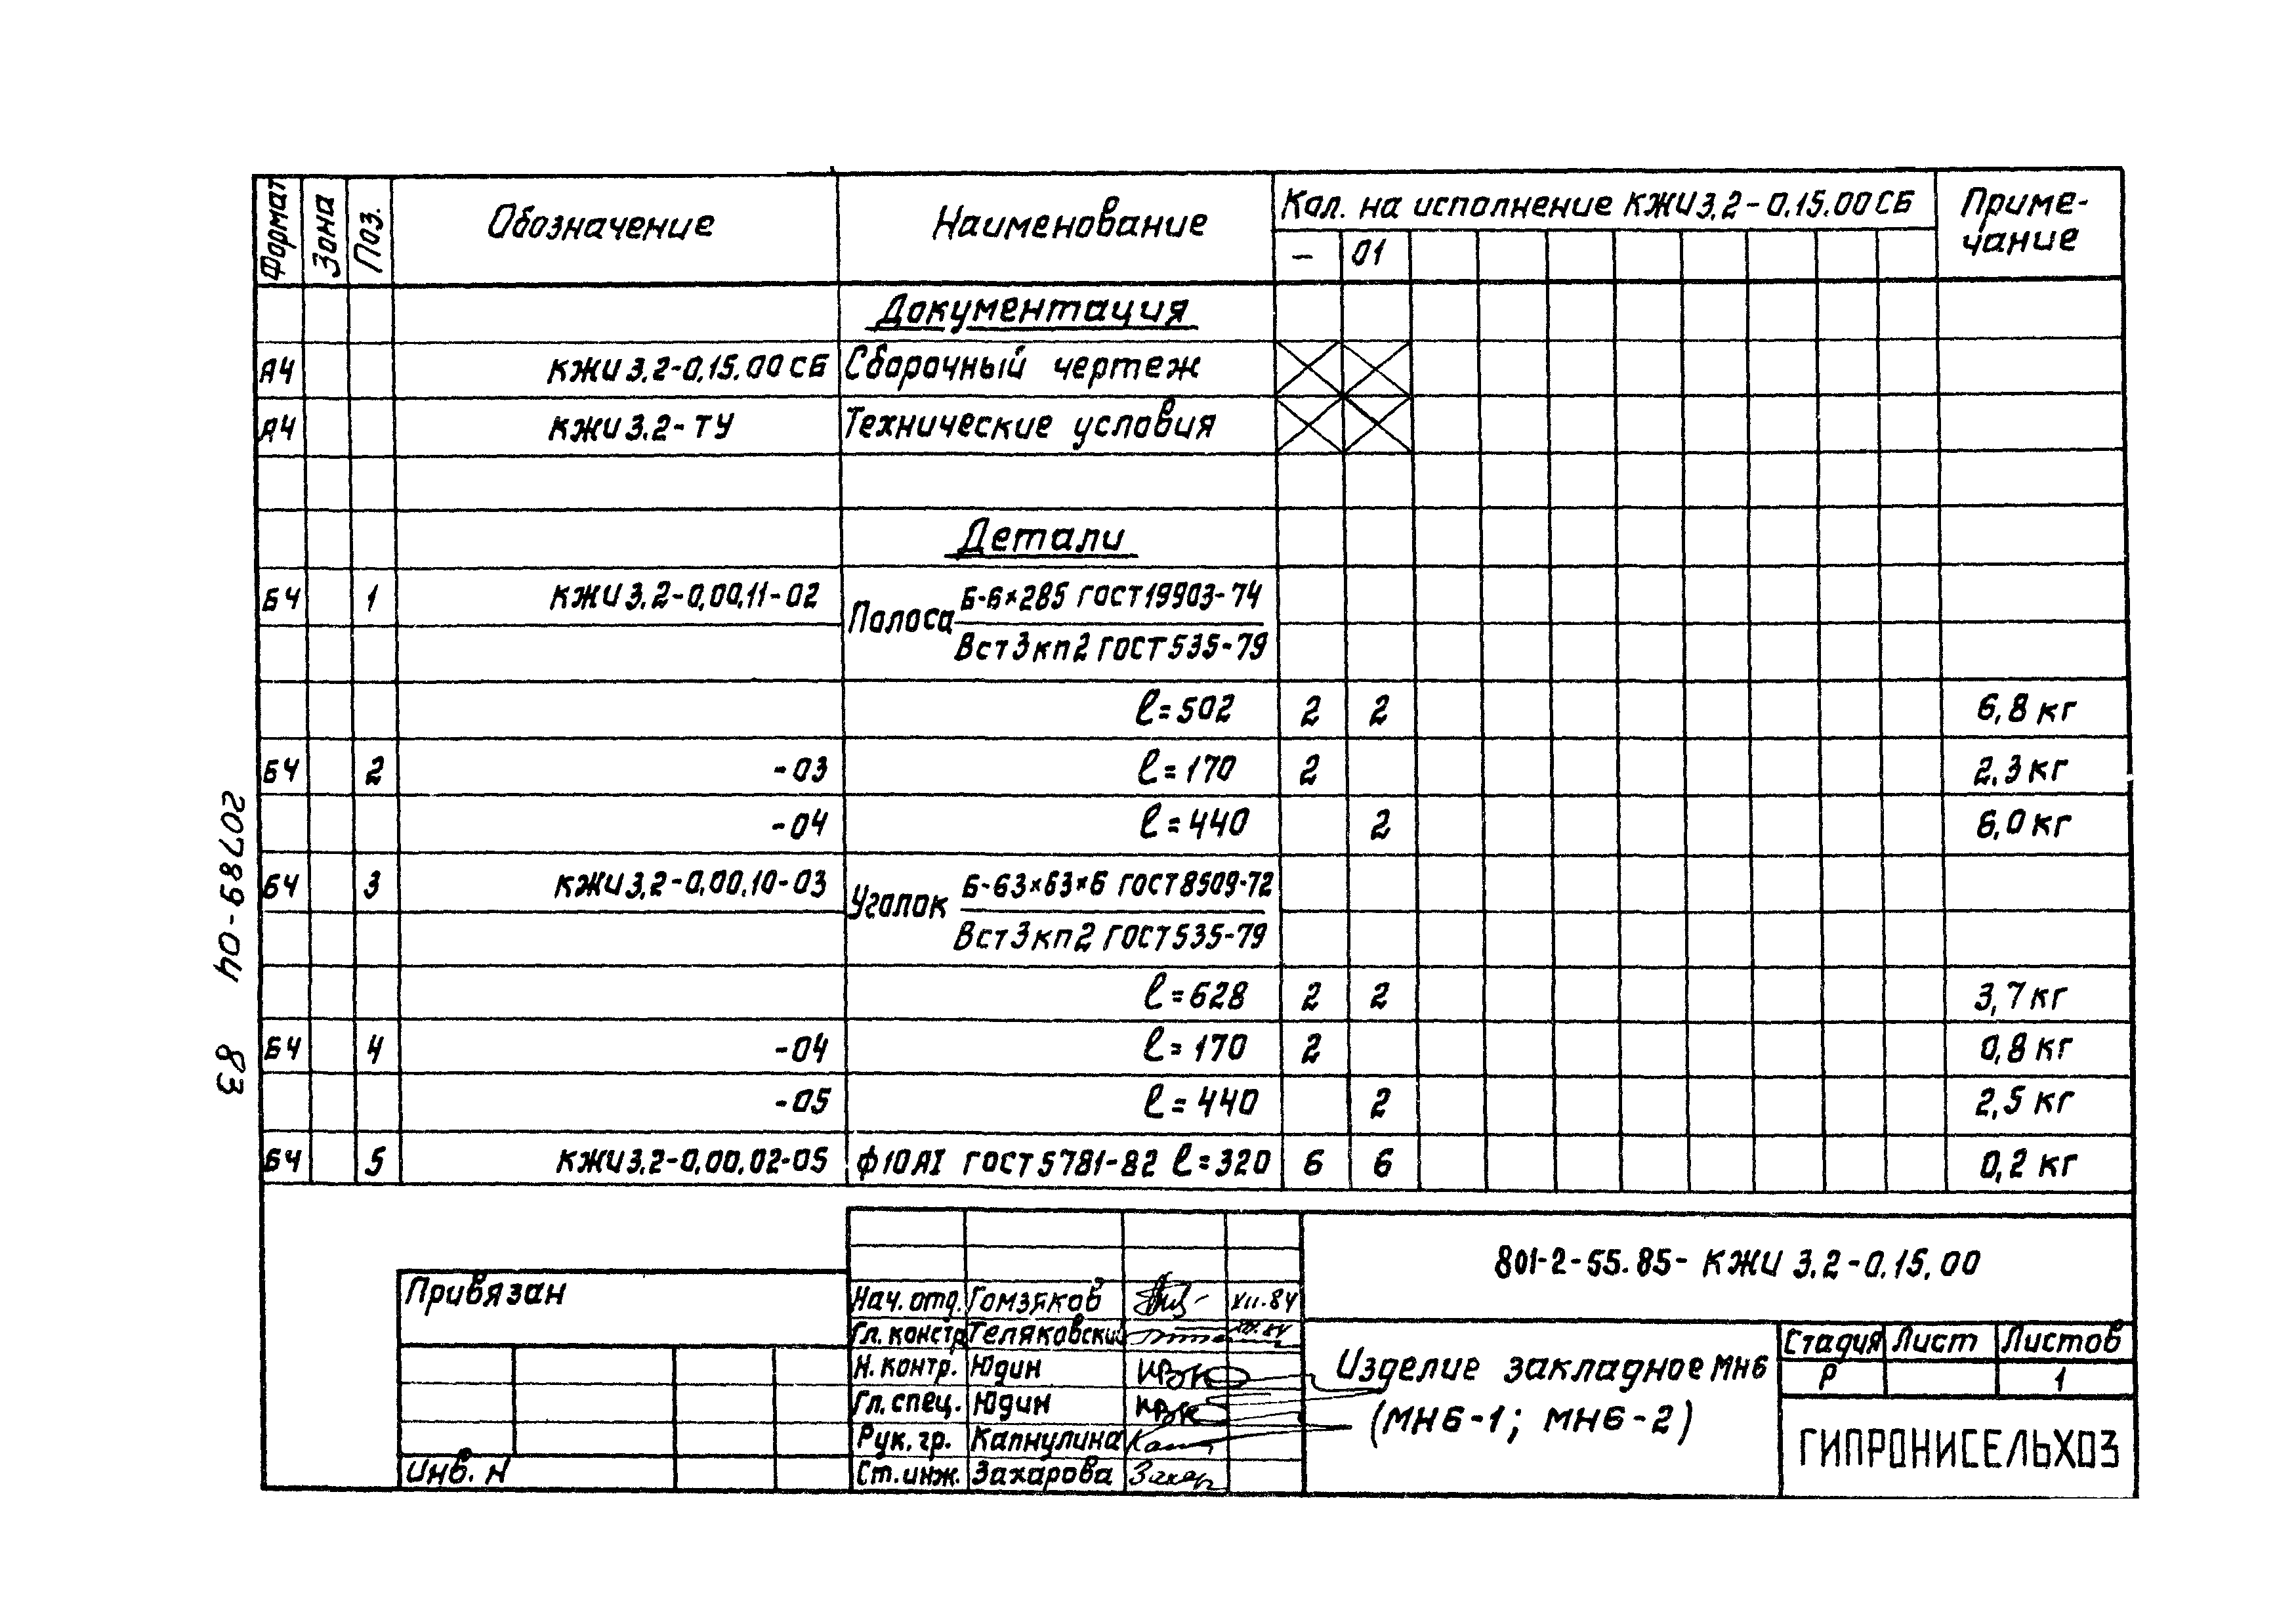 Формат Зона Поз. Обозначение Наименование Кол. на исполнение КЖИ3.2-0.15.00СБ Приме-
чание
- 01
Документация
А4 КЖИ3.2-0.15.00СБ Сборочный чертеж
А4 КЖИ3.2-ТУ Технические условия
Детали
БЧ 1 КЖИ3.2-0.00.11-02 Полоса Б-6×285 ГОСТ19903-74
ВСт3кп2 ГОСТ535-79
ℓ=502 2 2 6,8 кг
БЧ 2 -03 ℓ=170 2 2,3 кг
-04 ℓ=440 2 6,0 кг
БЧ 3 КЖИ3.2-0.00.10-03 Уголок Б-63×63×6 ГОСТ8509-72
ВСт3кп2 ГОСТ535-79
ℓ=628 2 2 3,7 кг
БЧ 4 -04 ℓ=170 2 0,8 кг
-05 ℓ=440 2 2,5 кг
БЧ 5 КЖИ3.2-0.00.02-05 ф10АI ГОСТ5781-82 ℓ=320 6 6 0,2 кг
20789-04 83
801-2-55.85-КЖИ 3.2-0.15.00
Привязан
Инв. N
Нач. отд. Гомзяков XII.84
Гл. констр. Теляковский XII.84
Н. контр. Юдин
Гл. спец. Юдин
Рук. гр. Капнулина
Ст. инж. Захарова Захар
Изделие закладное МН6
(МН6-1; МН6-2)
Стадия Лист Листов
Р 1
ГИПРОНИСЕЛЬХОЗ